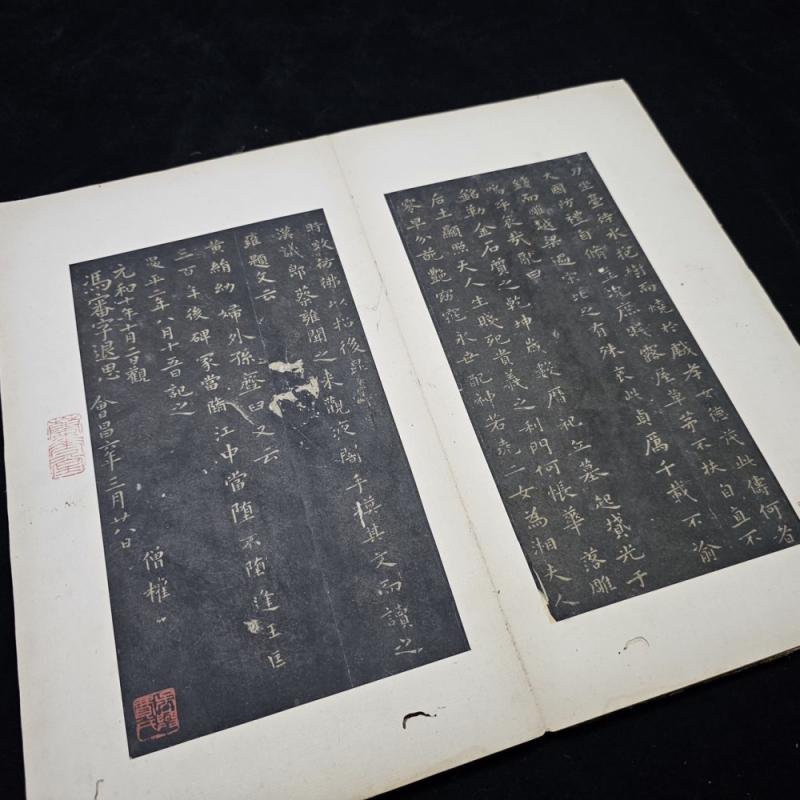 刀坐臺待水抱樹而燒於戲孝女德茂此儔何者
大國防禮自脩豈況庶賤露屋草茅不扶自直不
鏤而雕越梁過宋比之有殊哀此貞厲千載不渝
嗚乎哀哉亂曰
銘勒金石質之乾坤歲數曆祀立墓起墳光于
后土顯照夫人生賤死貴義之利門何悵華落雕
零早分葩艷窈窕永世配神若堯二女為湘夫人
時效彷彿以招後昆
漢議郎蔡雍聞之來觀夜闇手摸其文而讀之
雍題文云
黃絹幼婦外孫韲臼又云
三百年後碑冢當墮江中當墮不墮逢王匡
昇平二年八月十五日記之
元和十年十月二日觀
馮審字退思 會昌六年三月廿八日
僧權